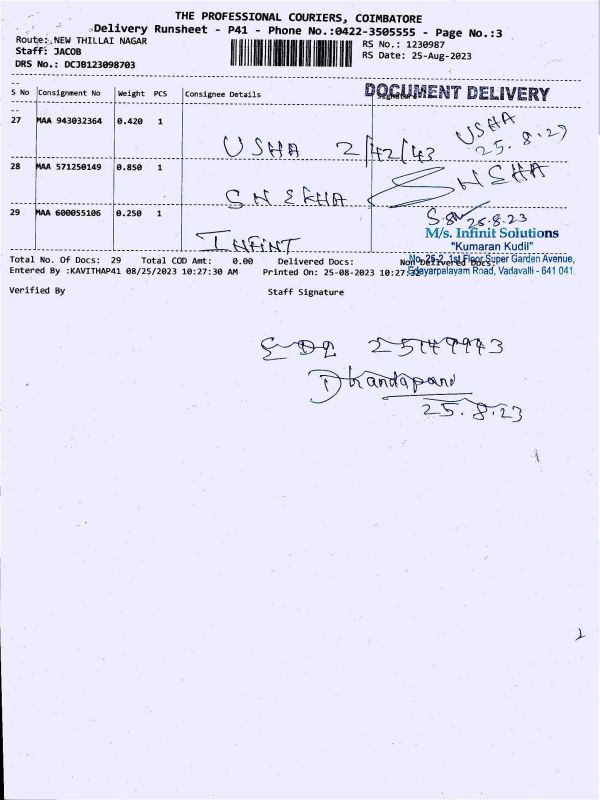 THE PROFESSIONAL COURIERS, COIMBATORE
Delivery Runsheet - P41 - Phone No.:0422-3505555 - Page No.:3
Route: NEW THILLAI NAGAR
RS No.: 1230987
Staff: JACOB
RS Date: 25-Aug-2023
DRS No.: DCJB123098703
S No Consignment No Weight PCS Consignee Details Signature
DOCUMENT DELIVERY
27 MAA 943032364 0.420 1
USHA 2/42/43
USHA
25.8.23
28 MAA 571250149 0.850 1
SNEKHA
SNEHA
29 MAA 600055106 0.250 1
INFINT
25.8.23
M/s. Infinit Solutions
"Kumaran Kudil"
No. 25-2, 1st Floor Super Garden Avenue,
Edayarpalayam Road, Vadavalli - 641 041.
Total No. Of Docs: 29 Total COD Amt: 0.00 Delivered Docs: Non Delivered Docs:
Entered By :KAVITHAP41 08/25/2023 10:27:30 AM Printed On: 25-08-2023 10:27:32
Verified By Staff Signature
Dhandapani
25.8.23